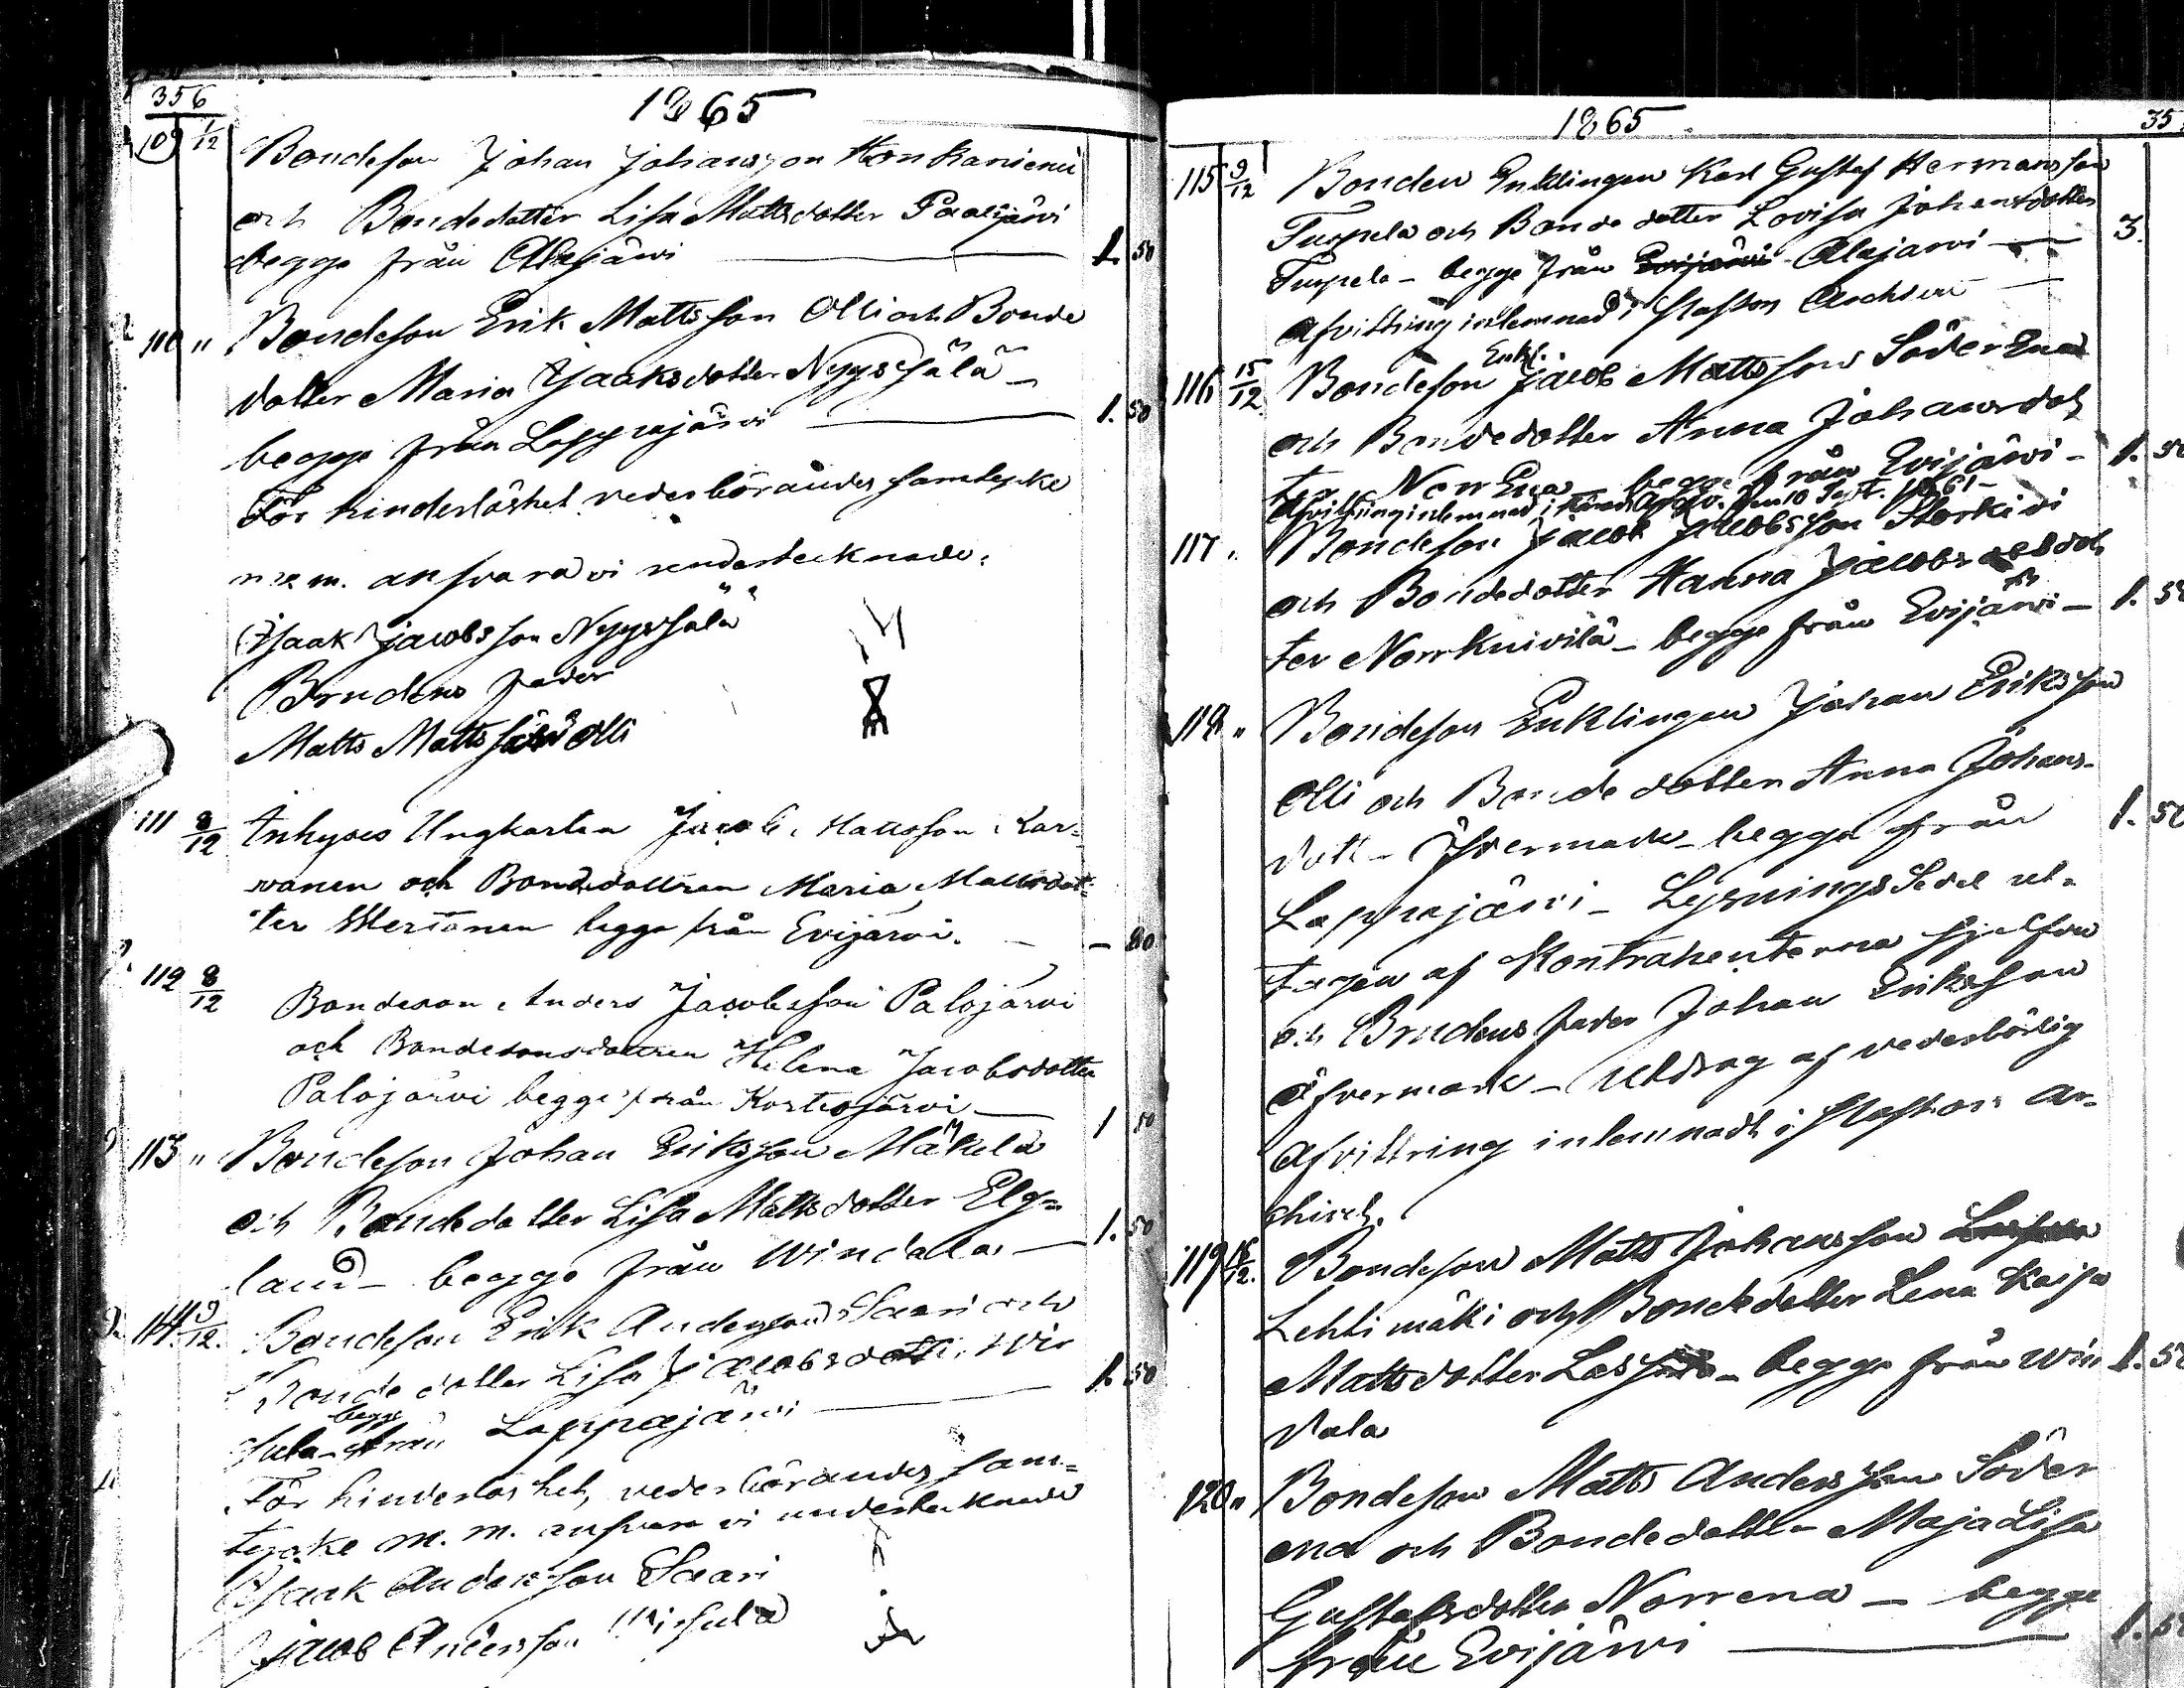 356
1865
109 1/12 Bondeson Johan Johansson Honkaniemi
och Bondedotter Lisa Mattsdotter Paalijärvi
begge från Alajärvi — 1. 50
110 " Bondeson Erik Mattsson Olli och Bonde
dotter Maria Isaaksdotter Nyyssälä —
begge från Lappajärvi — 1. 50
För hinderlöshet vederbörandes samtycke
m. m. ansvara vi undertecknade:
Isaak Jacobsson Nyyssälä
Brudens fader
Matts Mattsson Olli
111 8/12 Inhyses Ungkarlen Jacob Mattsson Kar=
vonen och Bondedottren Maria Mattsdot=
ter Mertanen begge från Evijärvi. — — 80
112 8/12 Bondeson Anders Jacobsson Palojärvi
och Bondesonsdottren Helena Jacobsdotter
Palojärvi begge från Kortesjärvi — 1 50
113 " Bondeson Johan Eriksson Mäkelä
och Bondedotter Lisa Mattsdotter Elg=
land — begge från Windala — 1. 50
114. 9/12. Bondeson Erik Andersson Saari och
Bondedotter Lisa Jacobsdotter Wir
begge
sula — från Lappajärvi — 1. 50
För hinderlöshet, vederbörandes sam=
tycke m. m. ansvara vi undertecknade
Isaak Andersson Saari
Jacob Andersson Wirsula
1865
357
115 9/12 Bonden Enklingen Karl Gustaf Hermansson
Turpela och Bondedotter Lovisa Johansdotter
Turpela — begge från Evijärvi Alajarvi — 3.
Afvittring inlemnad i Pastors Archivet —
Enkl.
116 15/12 Bondeson Jacob Mattsson Söder Ena
och Bondedotter Anna Johansdot
ter Norr Ena — begge från Evijärvi — 1. 50
Afvittring inlemnad i 10 Sept. 1861 —
117 " Bondeson Jacob Jacobsson Storkivi
och Bondedotter Hanna Jacobsdot
ter Norrknivilä — begge från Evijärvi — 1. 50
118 " Bondeson Enklingen Johan Eriksson
Olli och Bondedotter Anna Johans-
dott — Öfvermark — begge från 1. 50
Lappajärvi — LysningsSedel ut=
tagen af Kontrahenterna sjelfva
och Brudens fader Johan Eriksson
Öfvermark — Utdrag af vederbörlig
Afvittring inlemnadt i Pastors Ar-
chivet.
119 16/12. Bondeson Matts Johansson
Lehtimäki och Bondedotter Lena Kajsa
Mattsdotter Lassila — begge från Win 1. 50
dala
120 " Bondeson Matts Andersson Söder
ena och Bondedotter Maja Lisa
Gustafsdotter Norrena — begge
från Evijärvi — 1. 50